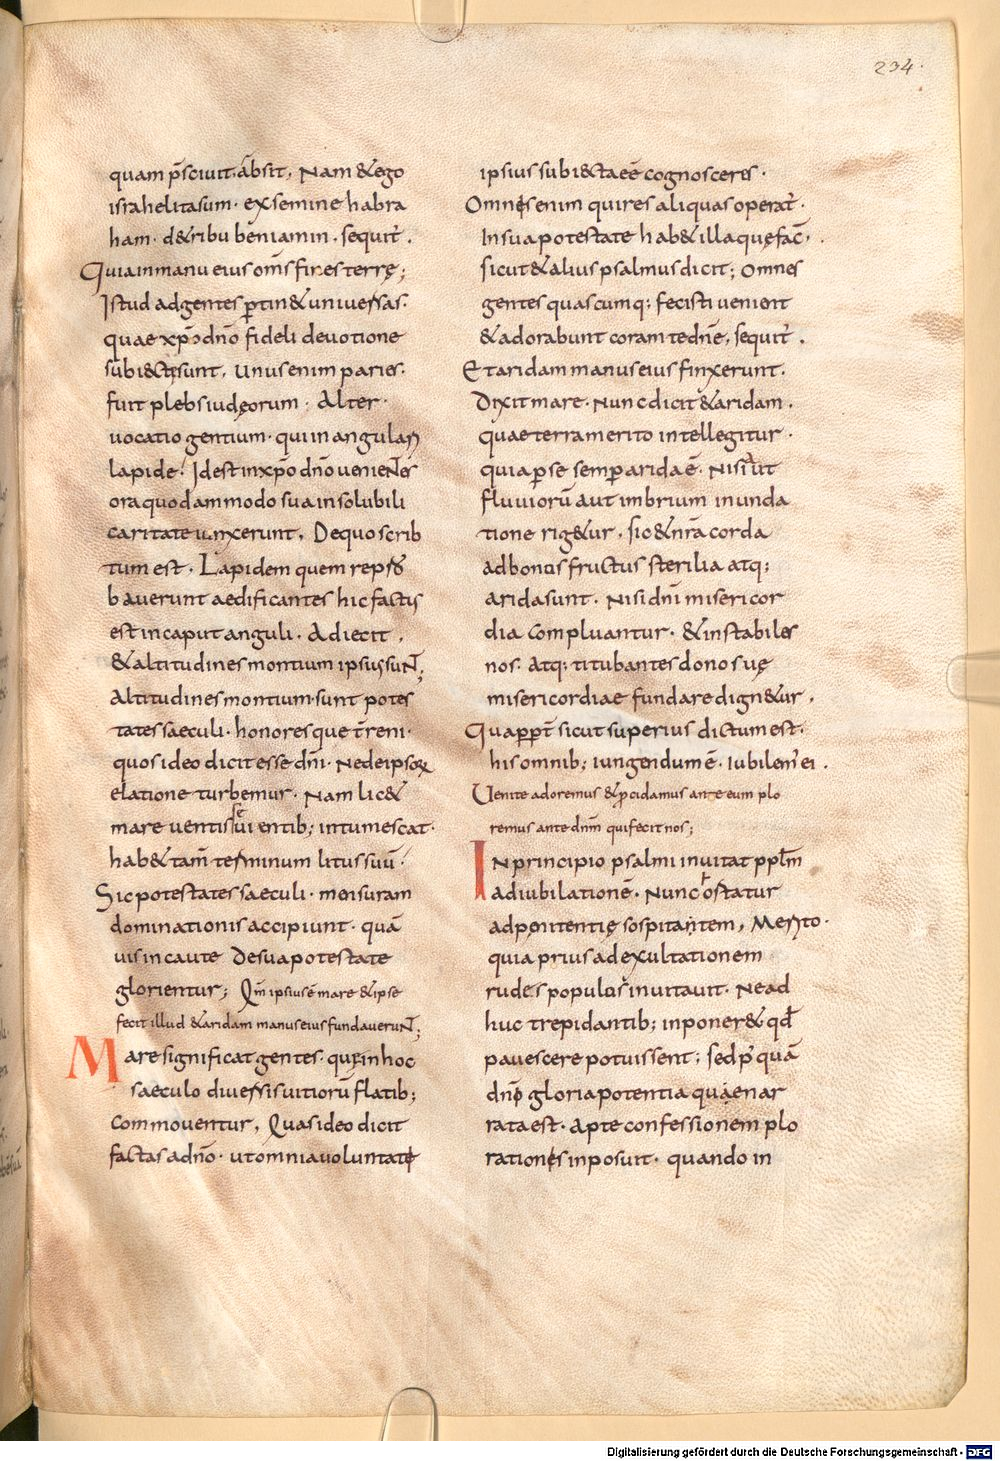 234.
quam p̄sciuit. absit, Nam & ego
israhelita sum · ex semine habra
ham · d& ribu beniamin. sequit̃.
Quia in manu eius om̄s fines terrę;
Istud ad gentes ꝑtin& uniuersas.
quae xp̄o dn̄o fideli deuotione
subi&tę sunt, Unus enim paries.
fuit plebs iudęorum · Alter ·
uocatio gentium · qui in angulari
lapide. Id est in xp̄o dn̄o uenieNtes
ora quodammodo sua insolubili
caritate iunxerunt, De quo scrib
tum est. Lapidem quem repro
bauerunt aedificantes hic factus
est in caput anguli. Adiecit,
& altitudines montium ipsius suNt;
Altitudines montium · sunt potes
tates saeculi · honores que t̄reni ·
quos ideo dicit esse dn̄i · Ne de ipsorꝝ
elatione turbemur · Nam lic&
mare uentis seuientib; intumescat ·
hab& tam̄ terminum litus suū ·
Sic potestates saeculi · mensuram
dominationis accipiunt · quā
uis incaute De sua potestate
glorientur; Qm̄ ipsius ē mare & ipse
fecit illud & aridam manus eius fundaueruNt;
Mare significat gentes · quę in hoc
saeculo diuersis uitiorū flatib;
commouentur, Quas ideo dicit
factas a dn̄o · ut omnia uoluntate
ipsius subi&ta eē cognosceres ·
Omnes enim qui res aliquas operat̃ ·
In sua potestate hab& illa quę fac̄ ·
sicut & alius psalmus dicit; Omnes
gentes quascumq; fecisti uenient
& adorabunt coram te dn̄e, sequit̃.
Et aridam manus eius finxerunt.
Dixit mare · Nunc dicit & aridam.
quae terra merito intellegitur ·
quia ꝑ se semꝑ arida ē · Nisi aut
fluuiorū aut imbrium inunda
tione rig&ur · sic & nr̄a corda
ad bonos fructus sterilia atq;
arida sunt · Nisi dn̄i misericor
dia compluantur · & instabiles
nos · atq; titubantes dono suę
misericordiae fundare dign&ur.
Quapp̄t sicut superius dictum est ·
his omnib; iungendum ē · iubilem̄ ei.
Uenite adoremus & ꝓcidamus ante eum plo
remus ante dn̄m qui fecit nos;
In principio psalmi inuitat ppl̄m
ad iubilationē · Nunc hortatur
ad pęnitentię sospitantem, Merito ·
quia prius ad exultationem
rudes populos inuitauit · Ne ad
huc trepidantib; inponer& qd̄
pauescere potuissent; sed p̄ quā
dn̄o gloria potentia quae nar
rata est · Apte confessionem plo
rationis inposuit · quando in
Digitalisierung gefördert durch die Deutsche Forschungsgemeinschaft - DFG